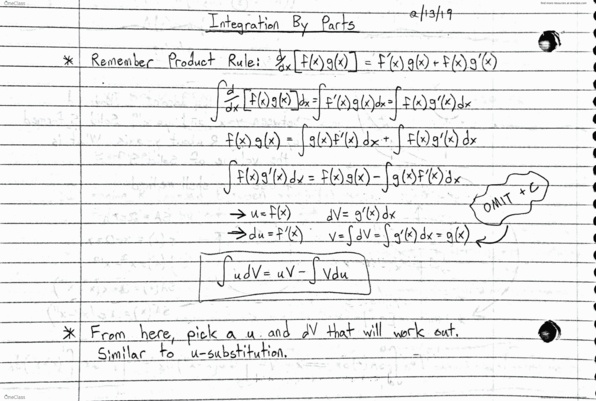 OneClass
2/13/19
Integration By Parts
* Remember Product Rule: d/dx [f(x)g(x)] = f'(x)g(x) + f(x)g'(x)
∫ d/dx [f(x)g(x)]dx = ∫ f'(x)g(x)dx = ∫ f(x)g'(x)dx
f(x)g(x) = ∫ g(x)f'(x) dx + ∫ f(x)g'(x) dx
∫ f(x)g'(x)dx = f(x)g(x) - ∫ g(x)f'(x)dx
OMIT + C
→ u = f(x) dV = g'(x) dx
→ du = f'(x) v = ∫ dV = ∫ g'(x) dx = g(x)
∫ u dV = uV - ∫ V du
* From here, pick a u and dV that will work out.
Similar to u-substitution.
OneClass